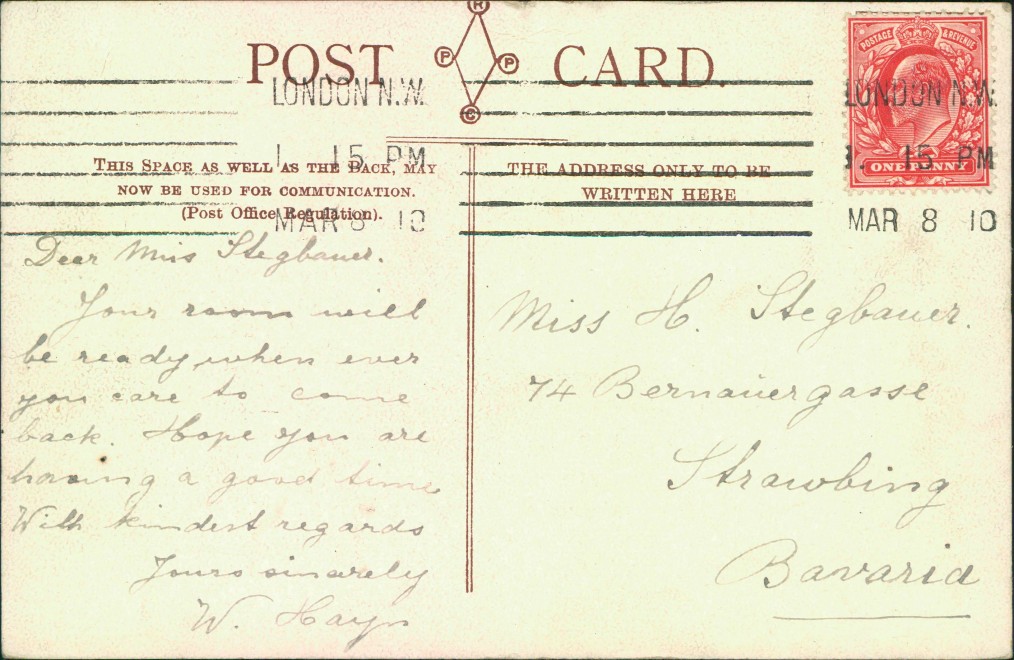 POST CARD.
R
P P
C
LONDON N.W.
1. 15 PM
MAR 8 10
THIS SPACE AS WELL AS THE BACK, MAY
NOW BE USED FOR COMMUNICATION.
(Post Office Regulation).
THE ADDRESS ONLY TO BE
WRITTEN HERE
POSTAGE & REVENUE
ONE PENNY
LONDON N.W.
1. 15 PM
MAR 8 10
Dear Miss Stegbauer.
Your room will
be ready when ever
you care to come
back. Hope you are
having a good time
With kindest regards
Yours sincerely
W.
Miss H. Stegbauer.
74 Bernauergasse
Strawbing
Bavaria